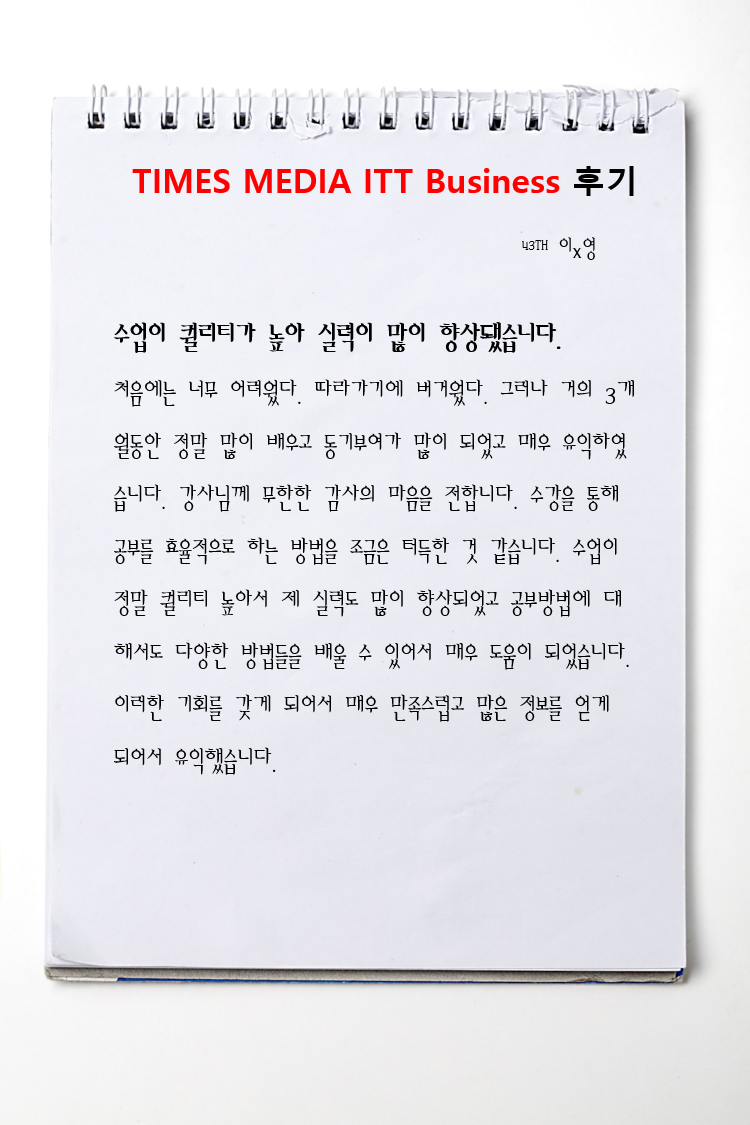 TIMES MEDIA ITT Business 후기
43TH 이x영
수업이 퀄리티가 높아 실력이 많이 향상됐습니다.
처음에는 너무 어려웠다. 따라가기에 버거웠다. 그러나 거의 3개
월동안 정말 많이 배우고 동기부여가 많이 되었고 매우 유익하였
습니다. 강사님께 무한한 감사의 마음을 전합니다. 수강을 통해
공부를 효율적으로 하는 방법을 조금은 터득한 것 같습니다. 수업이
정말 퀄리티 높아서 제 실력도 많이 향상되었고 공부방법에 대
해서도 다양한 방법들을 배울 수 있어서 매우 도움이 되었습니다.
이러한 기회를 갖게 되어서 매우 만족스럽고 많은 정보를 얻게
되어서 유익했습니다.